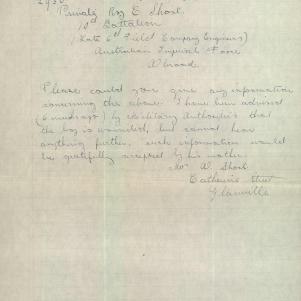 2930
Private Roy E Short.
10th Battalion
(Late 6th Field Company Engineers)
Australian Imperial Force
Abroad
Please could you give any information
concerning the above. I have been advised
(6 weeks ago) by Military Authorities that
the boy is wounded, but cannot hear
anything further. such information would
be gratefully accepted by his mother.
Mrs W. Short.
Catherine Street
Glanville